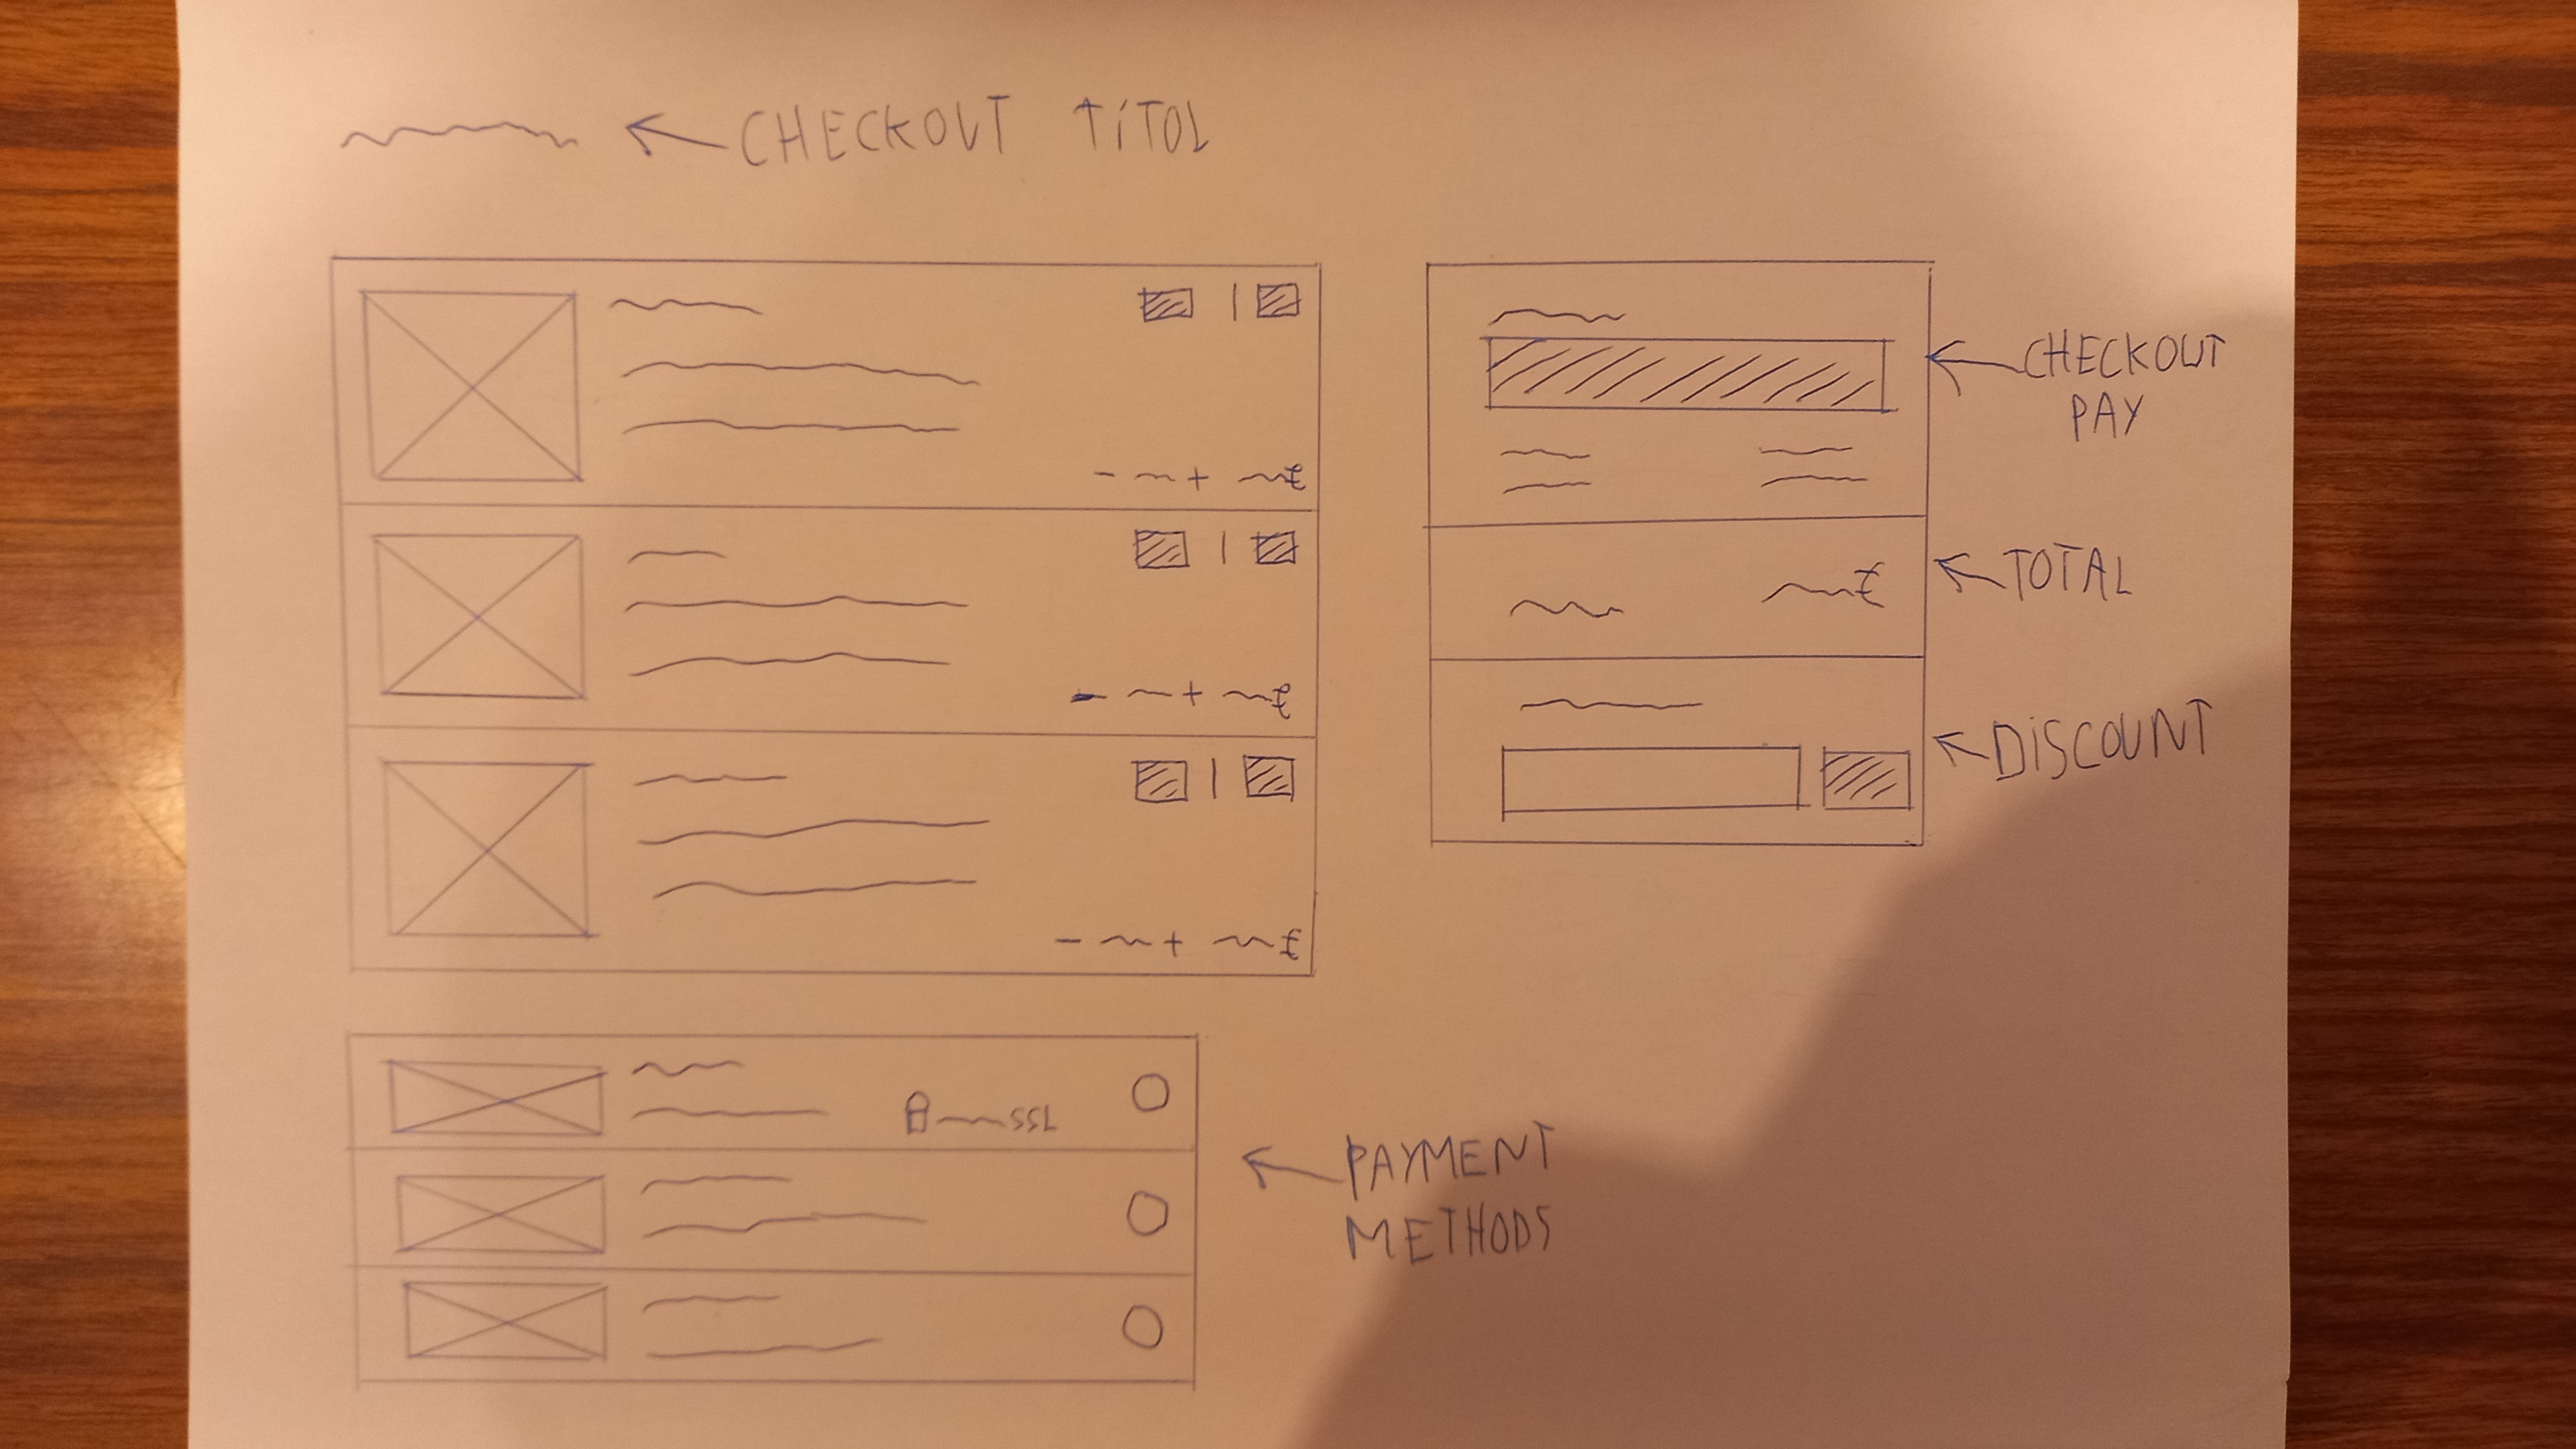 CHECKOUT TíTOL
- + £
CHECKOUT
PAY
- + £
£
TOTAL
- + £
DISCOUNT
SSL
PAYMENT
METHODS